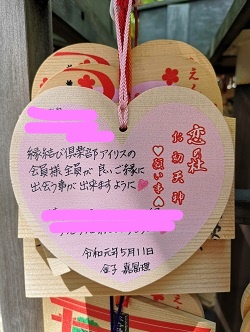 恋の社
お初天神
♥願い事♥
縁結び倶楽部アイリスの
会員様全員が良いご縁に
出会う事が出来ますように♥
令和元年5月11日
金子
えん